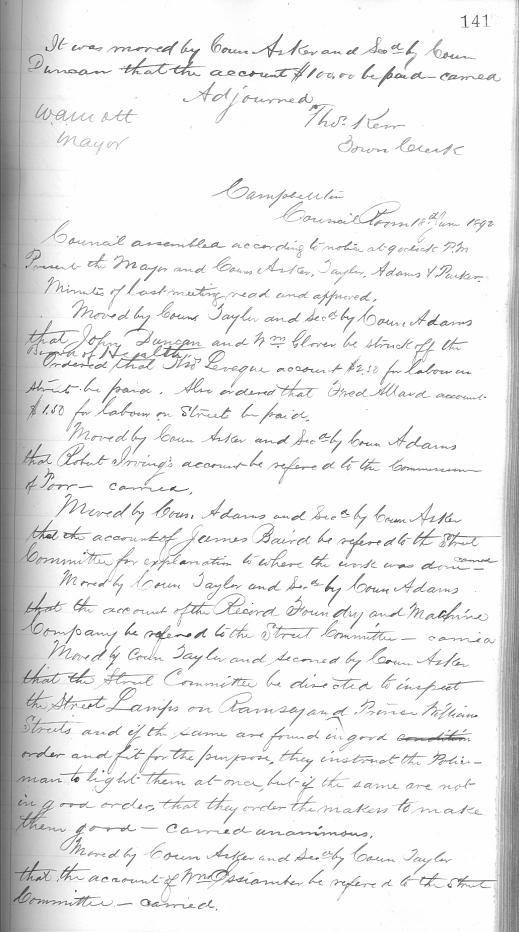 141
It was moved by Coun Asker and Secd by Coun
Duncan that the account $100.00 be paid - carried
Adjourned
Thos. Kerr
Mayor
Town Clerk
Campbellton
Council Room 18th Jan 1892
Council assembled according to notice at 9 oclock P.M
Present the Mayor and Couns Asker, Taylor, Adams & Parker.
Minutes of last meeting read and approved.
Moved by Coun Taylor and secd by Coun Adams
that John Duncan and Wm Glover be struck off the
Board of Health
Ordered that Thos Levegue account $2.50 for labour on
streets be paid. Also ordered that Fred Allard account
$1.50 for labour on Street be paid.
Moved by Coun Asker and Secd by Coun Adams
that Robert Irving's account be refered to the Commissioner
of Poor - carried.
Moved by Coun. Adams and Secd by Coun Asker
that the account of James Baird be refered to the Street
Committee for explanation to where the work was done - carried
Moved by Coun Taylor and Secd by Coun Adams
that the account of the Record Foundry and Machine
Company be refered to the Street Committee - carried
Moved by Coun Taylor and seconed by Coun Asker
that the Street Committee be directed to inspect
the Street Lamps on Ramsay and Prince William
Streets and if the same are found in good condition
order and fit for the purpose, they instruct the Police-
man to light them at once, but if the same are not
in good order, that they order the makers to make
them good - carried unanimous.
Moved by Coun Asker and Secd by Coun Taylor
that the account of Wm Ossiamber be refered to the Street
Committee - carried.